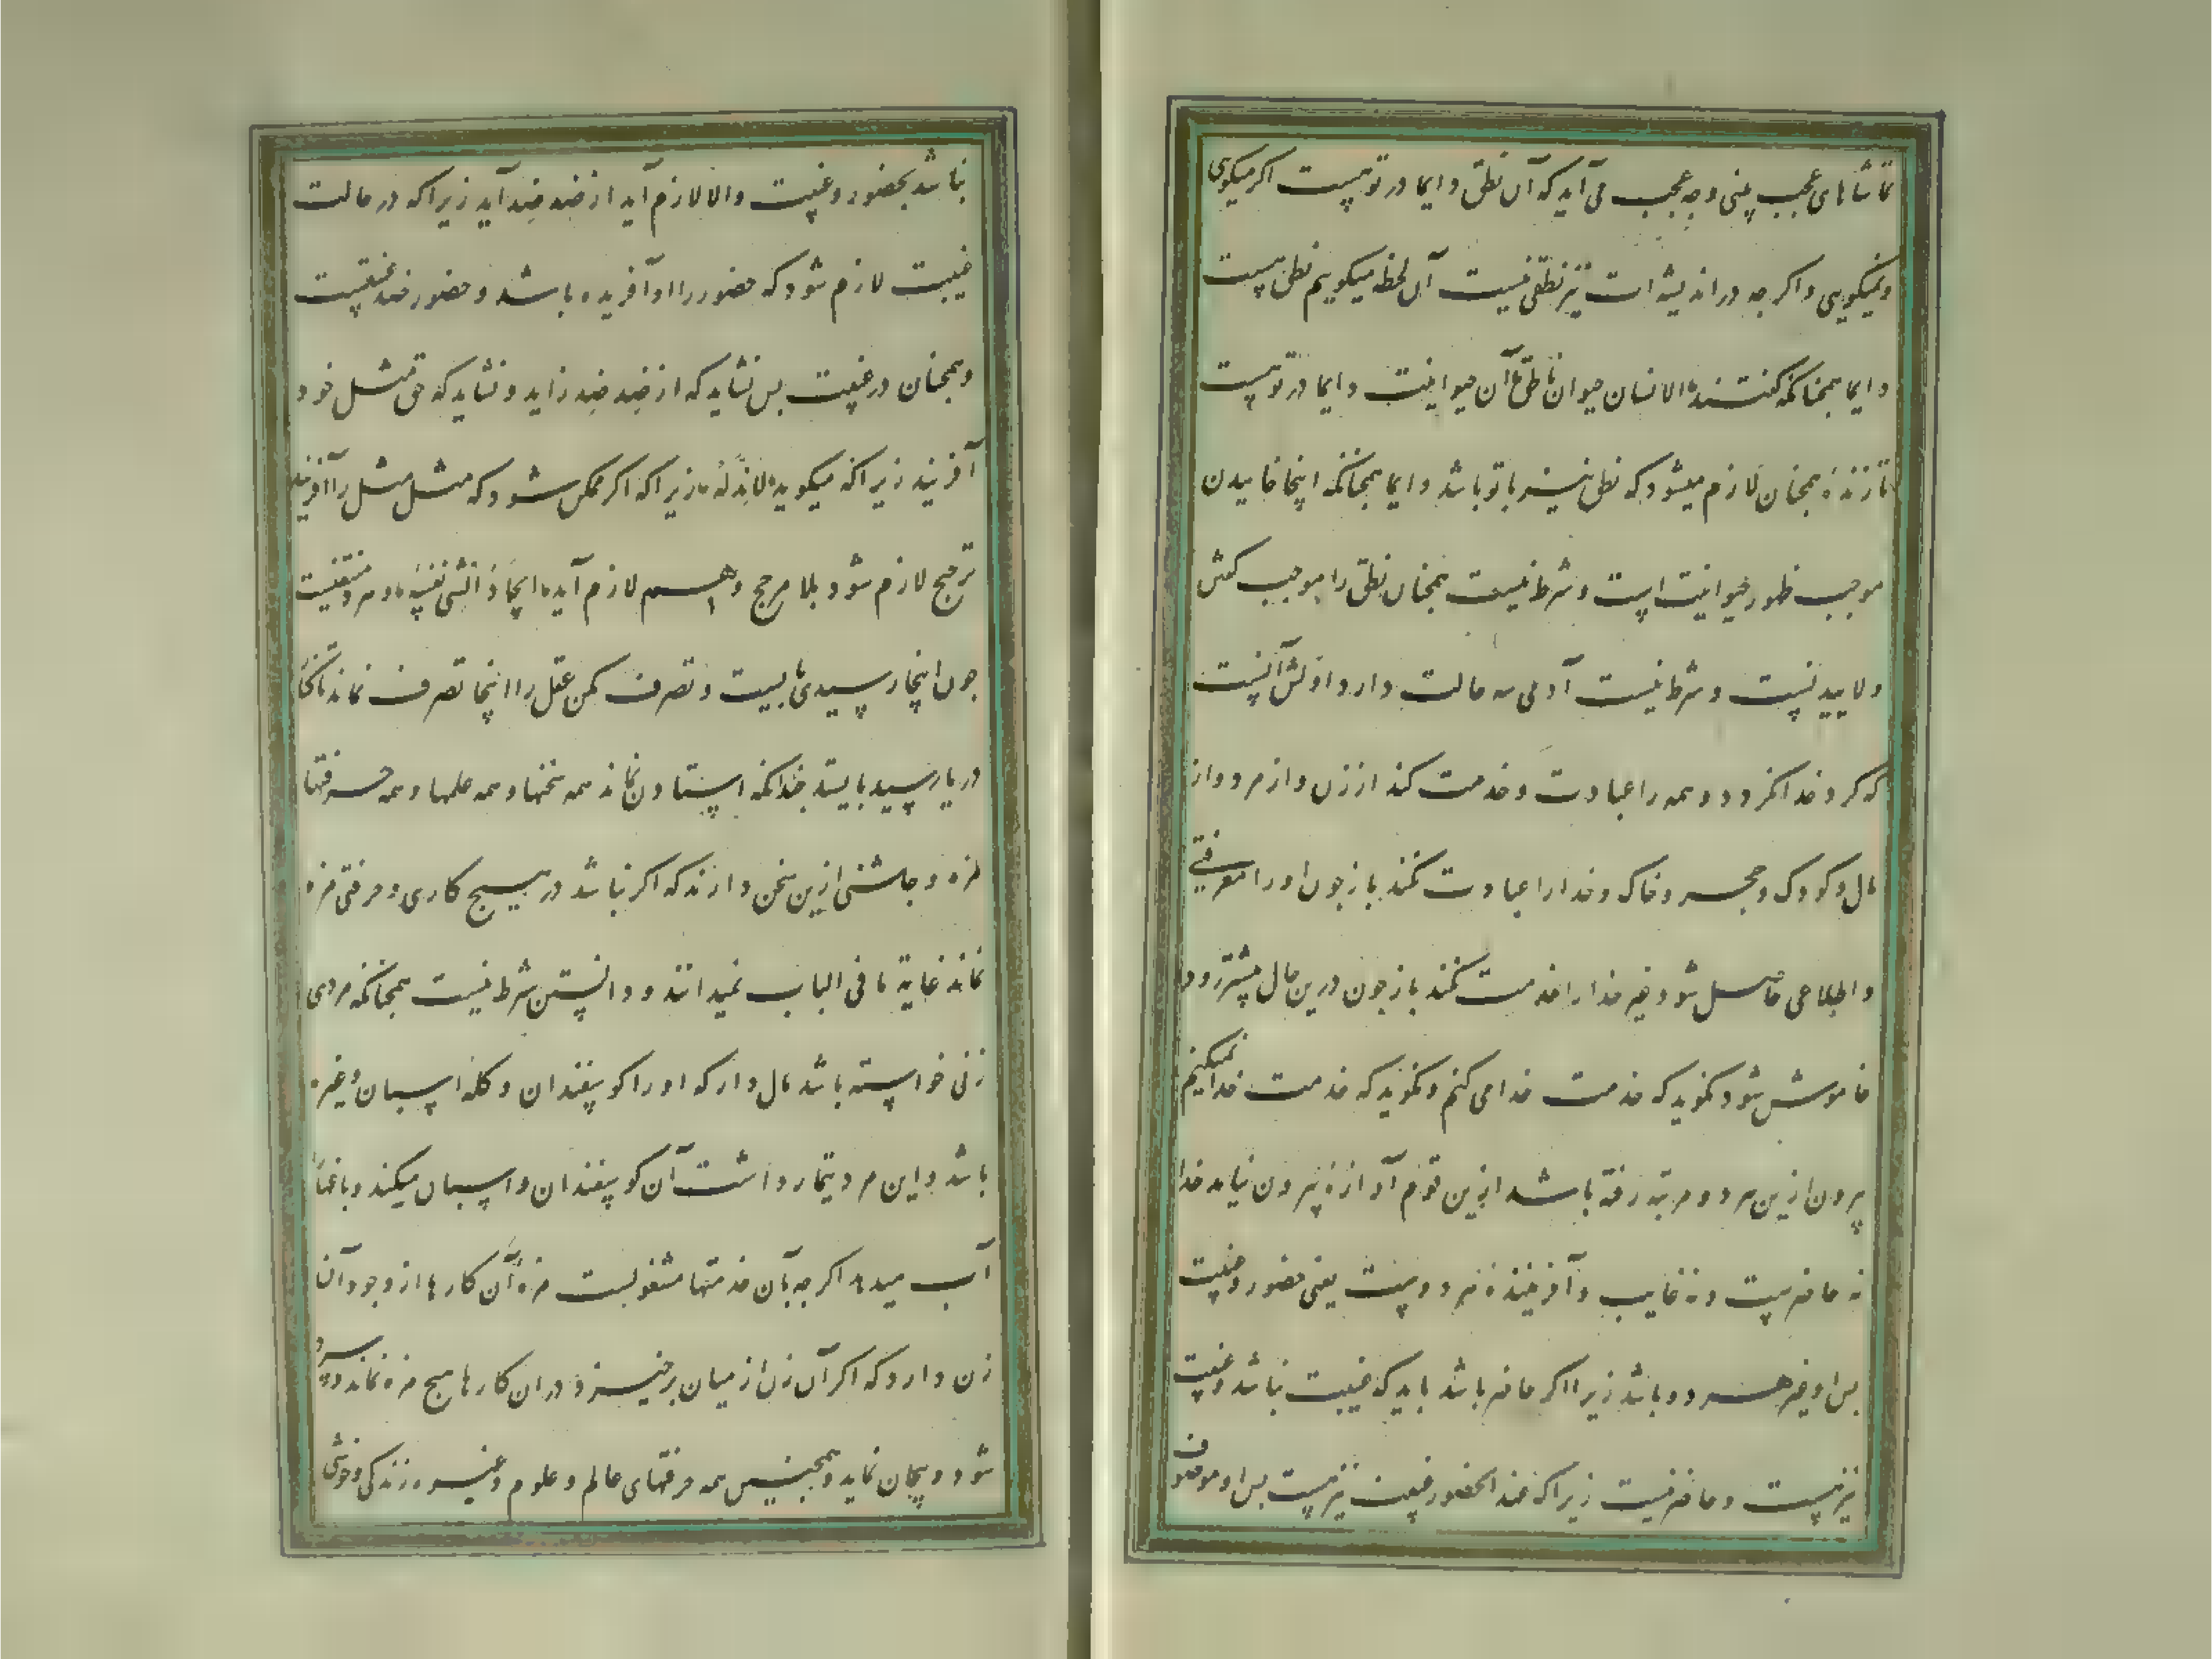 تماشاهای عجب بینی وچه عجب می آید که آن نطق دایما در تو نیست اکر میکویی
ونمیکویی واکرچه در اندیشه ات نیز نطقی نیست آن لحظه میکوییم نطق نیست
دایما همچنانکه کفتند الانسان حیوان ناطق آن حیوانیت دایما در تو نیست
تا زنده همچنان لازم میشود که نطق نیز با تو باشد دایما همچنانکه اینجا خاییدن
موجب ظهور حیوانیت است و شرط نیست همچنان نطق را موجب کفتن
ولاییدنست و شرط نیست آدمی سه حالت دارد اولش آنست
که کرد خدا نکردد و همه را عبادت و خدمت کند از زن و از مرد و از
مال و کودک و حجر و خاک و خدا را عبادت نکند باز چون او را معرفتی
و اطلاعی حاصل شود غیر خدا را خدمت نکند باز چون درین حال پیشتر رود
خاموش شود نکوید که خدمت خدا می کنم و نکوید که خدمت خدا نمیکنم
بیرون ازین هر دو مرتبه رفته باشد ازین قوم آوازه بیرون نیاید خدا
نه حاضرست و نه غایب و آفریننده هر دوست یعنی حضور و غیبت
بس او غیر هر دو باشد زیرا اکر حاضر باشد باید که غیبت نباشد و غیبت
نیز هست و حاضر نیست زیرا که عند الحضور غیبت نیز نیست بس او موصوف
نباشد بحضور و غیبت و الا لازم آید از ضد ضد آید زیرا که در حالت
غیبت لازم شود که حضور را او آفریده باشد و حضور ضد غیبتست
و همچنان در غیبت بس نشاید که از ضد ضد زاید و نشاید که حق مثل خود
آفریند زیرا که میکوید لا ندّ له زیرا که اکر ممکن شود که مثل مثل را آفریند
ترجیح لازم شود بلا مرجح و هم لازم آید ایجاد الشی نفسه و هر دو منتفیست
چون اینجا رسیدی بایست و تصرف مکن عقل را اینجا تصرف نماند تا کنار
دریا رسید بایستد چندانکه ایستادن نماند همه سخنها و همه علمها و همه حرفتها
مزه و چاشنی ازین سخن دارند که اکر نباشد در هیچ کاری و حرفتی مزه
نماند غایة ما فی الباب نمیدانند و دانستن شرط نیست همچنانکه مردی
زنی خواسته باشد مال دار که او را کوسفندان و کله اسبان و غیره
باشد و این مرد تیمار داشت آن کوسفندان و اسبان میکند و باغها
آب میدهد اکرچه بآن خدمتها مشغولست مزه آن کارها از وجود آن
زن دارد که اکر آن زن از میان برخیزد در آن کارها هیچ مزه نماند و سرد
شود و بیجان نماید و همچنین همه حرفتهای عالم و علوم و غیره زندکی و خوشی